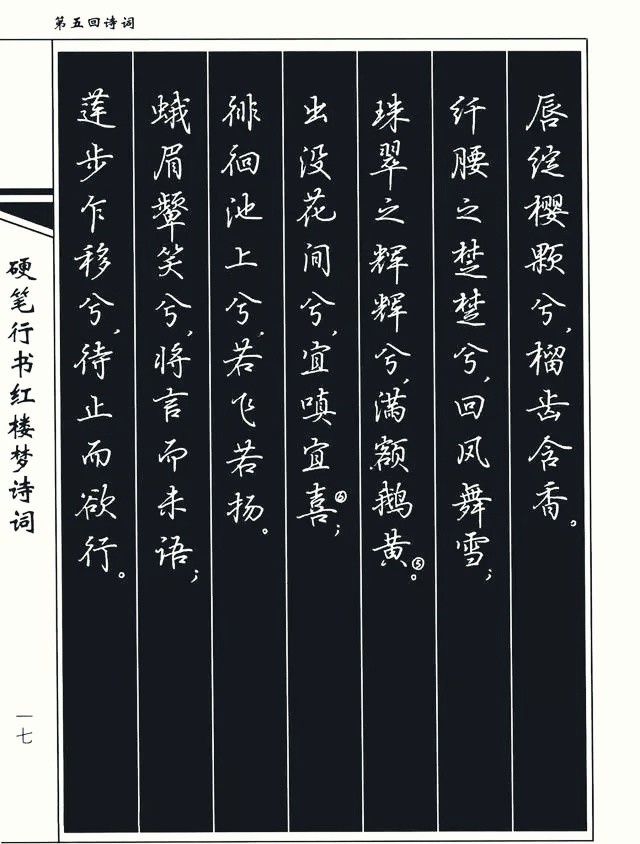 第五回诗词
唇绽樱颗兮,榴齿含香。
纤腰之楚楚兮,回凤舞雪;
珠翠之辉辉兮,满额鹅黄⑤。
出没花间兮,宜嗔宜喜⑥;
徘徊池上兮,若飞若扬。
蛾眉颦笑兮,将言而未语;
莲步乍移兮,待止而欲行。
硬笔行书红楼梦诗词
一七